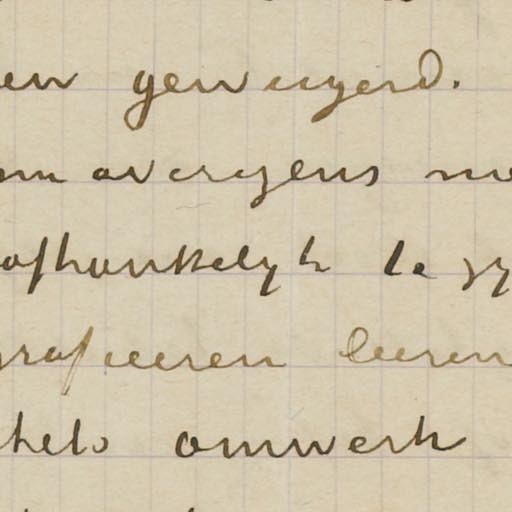 en geweigerd.
nu overigens me
afhankelijk te zij
grafeeren leeren
omwerk